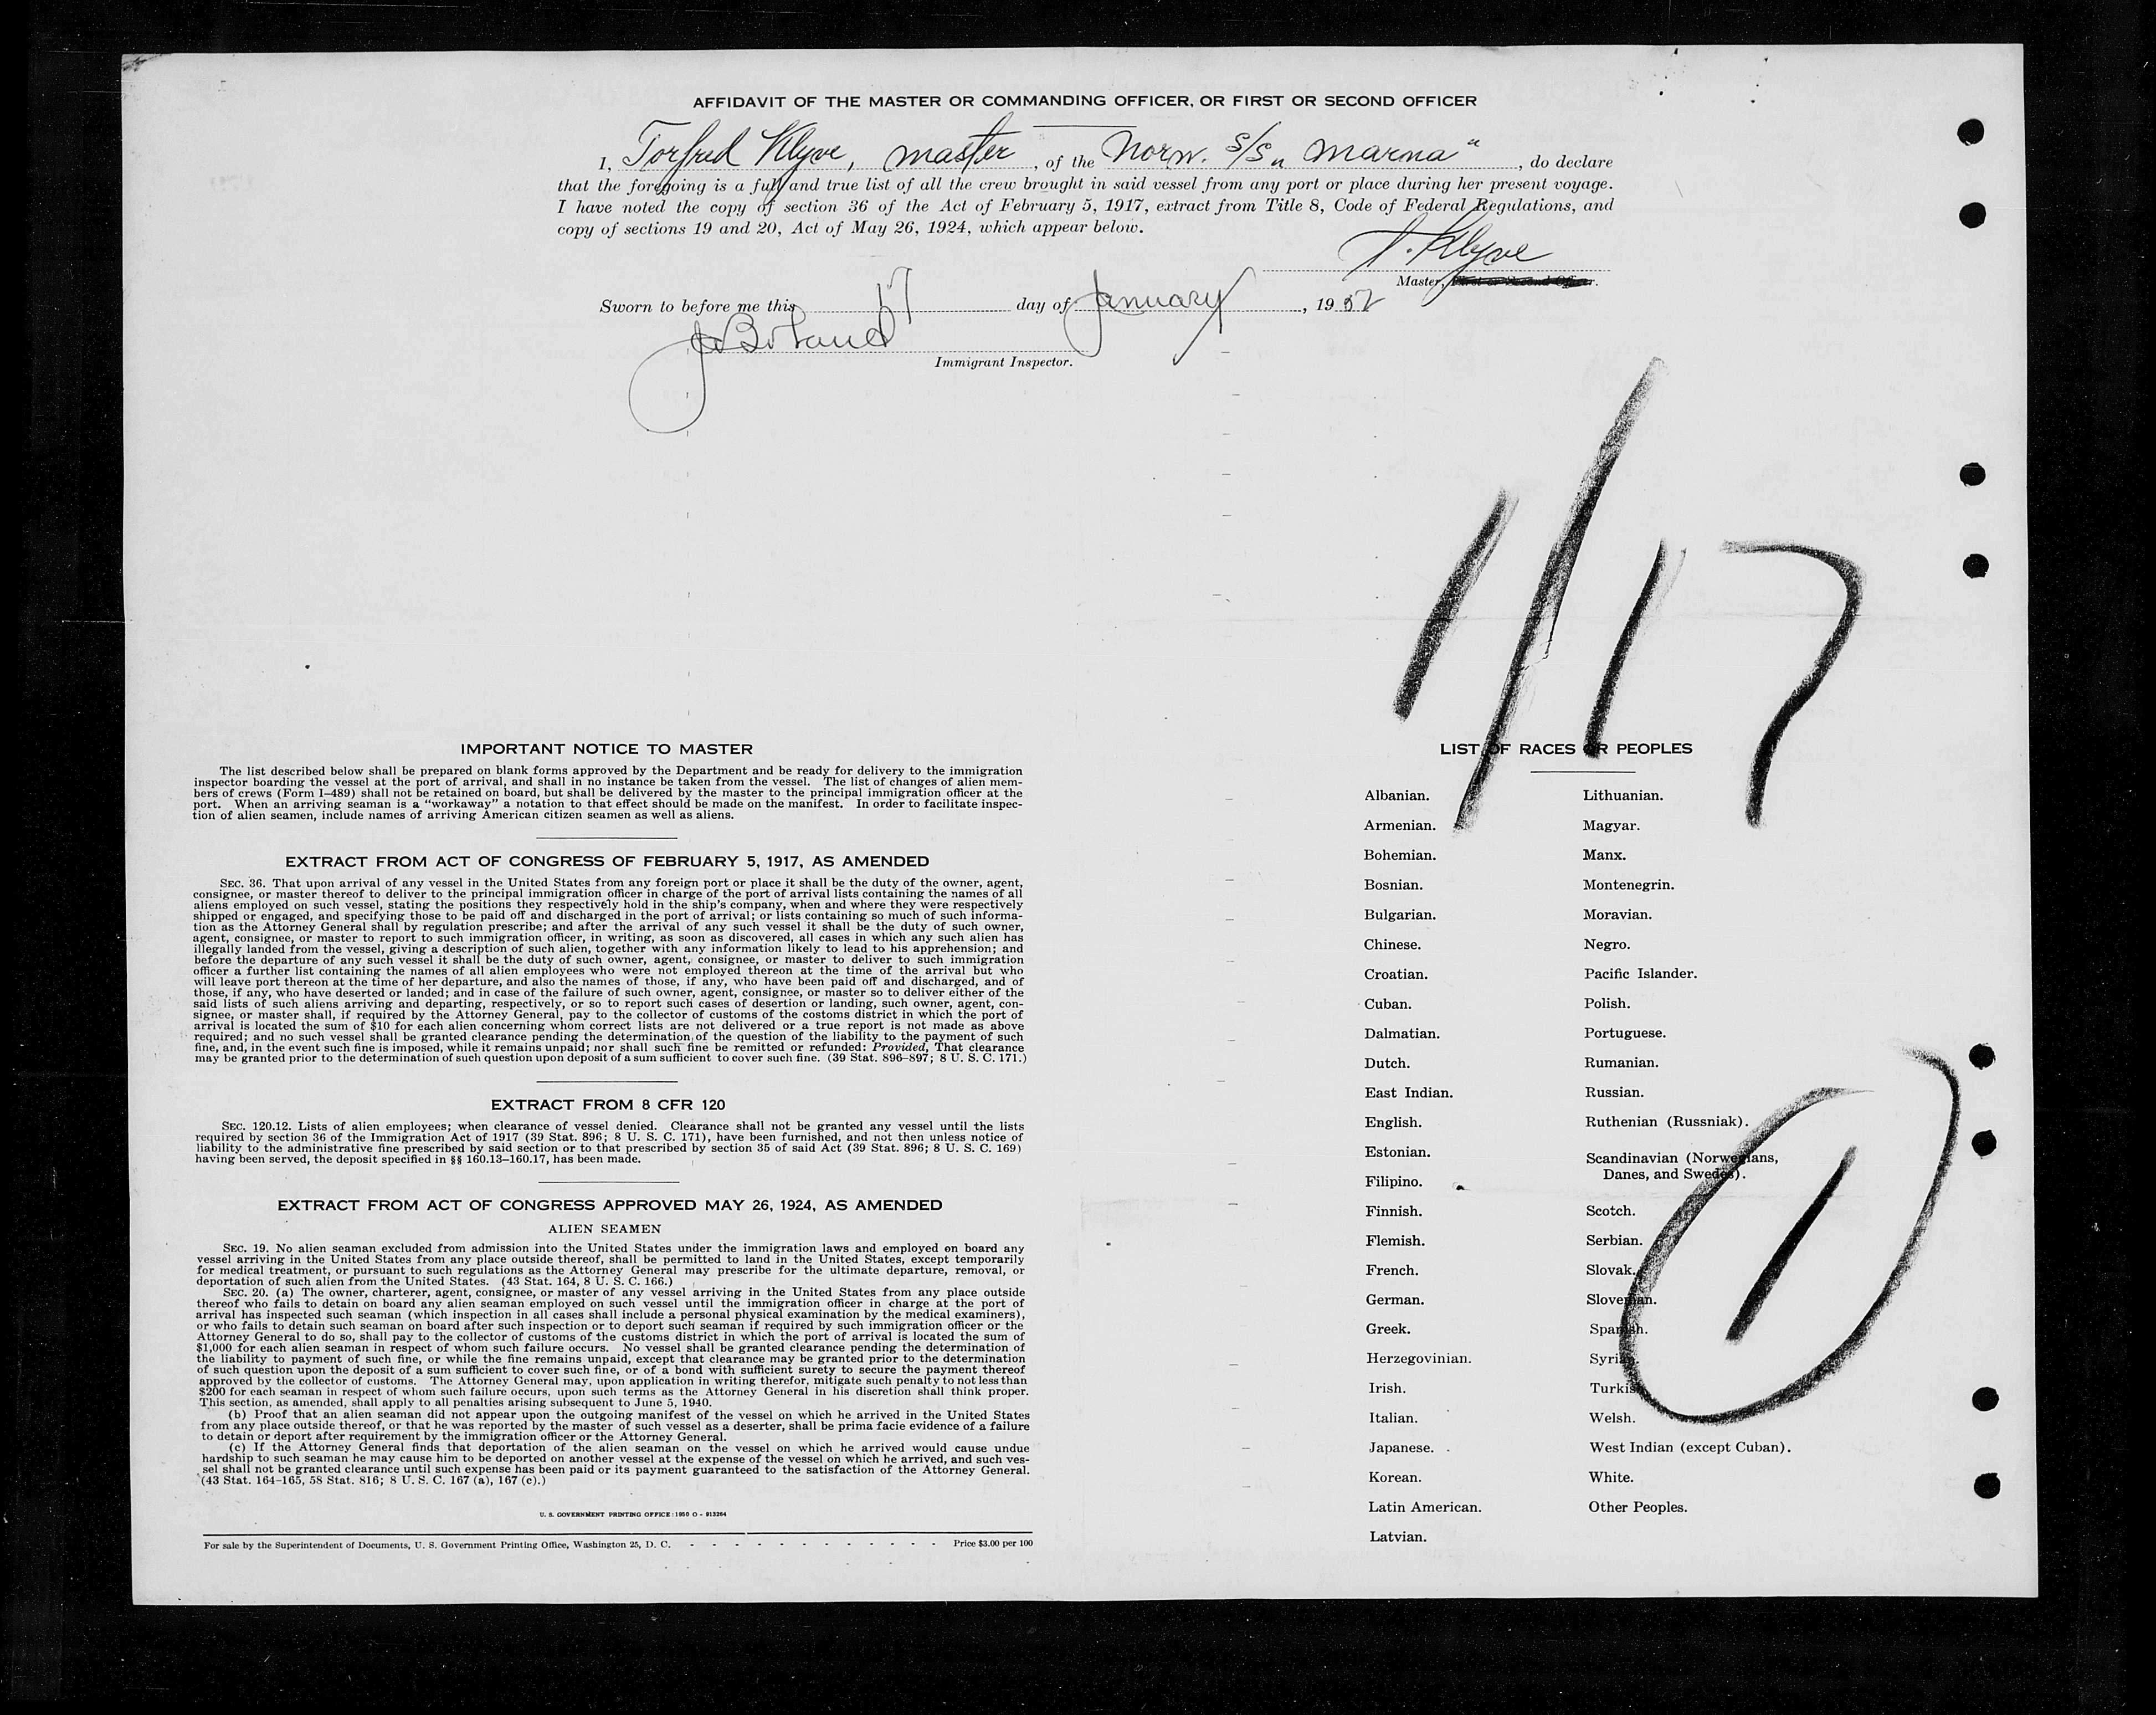 AFFIDAVIT OF THE MASTER OR COMMANDING OFFICER, OR FIRST OR SECOND OFFICER
I, Torfred Klyve, master, of the Norw. S/S „Marna“, do declare
that the foregoing is a full and true list of all the crew brought in said vessel from any port or place during her present voyage.
I have noted the copy of section 36 of the Act of February 5, 1917, extract from Title 8, Code of Federal Regulations, and
copy of sections 19 and 20, Act of May 26, 1924, which appear below.
T. Klyve
Master, First or Second Officer.
Sworn to before me this 17 day of January, 1952
Immigrant Inspector.
1/17
IMPORTANT NOTICE TO MASTER
The list described below shall be prepared on blank forms approved by the Department and be ready for delivery to the immigration
inspector boarding the vessel at the port of arrival, and shall in no instance be taken from the vessel. The list of changes of alien mem-
bers of crews (Form I–489) shall not be retained on board, but shall be delivered by the master to the principal immigration officer at the
port. When an arriving seaman is a “workaway” a notation to that effect should be made on the manifest. In order to facilitate inspec-
tion of alien seamen, include names of arriving American citizen seamen as well as aliens.
EXTRACT FROM ACT OF CONGRESS OF FEBRUARY 5, 1917, AS AMENDED
SEC. 36. That upon arrival of any vessel in the United States from any foreign port or place it shall be the duty of the owner, agent,
consignee, or master thereof to deliver to the principal immigration officer in charge of the port of arrival lists containing the names of all
aliens employed on such vessel, stating the positions they respectively hold in the ship's company, when and where they were respectively
shipped or engaged, and specifying those to be paid off and discharged in the port of arrival; or lists containing so much of such informa-
tion as the Attorney General shall by regulation prescribe; and after the arrival of any such vessel it shall be the duty of such owner,
agent, consignee, or master to report to such immigration officer, in writing, as soon as discovered, all cases in which any such alien has
illegally landed from the vessel, giving a description of such alien, together with any information likely to lead to his apprehension; and
before the departure of any such vessel it shall be the duty of such owner, agent, consignee, or master to deliver to such immigration
officer a further list containing the names of all alien employees who were not employed thereon at the time of the arrival but who
will leave port thereon at the time of her departure, and also the names of those, if any, who have been paid off and discharged, and of
those, if any, who have deserted or landed; and in case of the failure of such owner, agent, consignee, or master so to deliver either of the
said lists of such aliens arriving and departing, respectively, or so to report such cases of desertion or landing, such owner, agent, con-
signee, or master shall, if required by the Attorney General, pay to the collector of customs of the costoms district in which the port of
arrival is located the sum of $10 for each alien concerning whom correct lists are not delivered or a true report is not made as above
required; and no such vessel shall be granted clearance pending the determination of the question of the liability to the payment of such
fine, and, in the event such fine is imposed, while it remains unpaid; nor shall such fine be remitted or refunded: Provided, That clearance
may be granted prior to the determination of such question upon deposit of a sum sufficient to cover such fine. (39 Stat. 896–897; 8 U. S. C. 171.)
EXTRACT FROM 8 CFR 120
SEC. 120.12. Lists of alien employees; when clearance of vessel denied. Clearance shall not be granted any vessel until the lists
required by section 36 of the Immigration Act of 1917 (39 Stat. 896; 8 U. S. C. 171), have been furnished, and not then unless notice of
liability to the administrative fine prescribed by said section or to that prescribed by section 35 of said Act (39 Stat. 896; 8 U. S. C. 169)
having been served, the deposit specified in §§ 160.13–160.17, has been made.
EXTRACT FROM ACT OF CONGRESS APPROVED MAY 26, 1924, AS AMENDED
ALIEN SEAMEN
SEC. 19. No alien seaman excluded from admission into the United States under the immigration laws and employed on board any
vessel arriving in the United States from any place outside thereof, shall be permitted to land in the United States, except temporarily
for medical treatment, or pursuant to such regulations as the Attorney General may prescribe for the ultimate departure, removal, or
deportation of such alien from the United States. (43 Stat. 164, 8 U. S. C. 166.)
SEC. 20. (a) The owner, charterer, agent, consignee, or master of any vessel arriving in the United States from any place outside
thereof who fails to detain on board any alien seaman employed on such vessel until the immigration officer in charge at the port of
arrival has inspected such seaman (which inspection in all cases shall include a personal physical examination by the medical examiners),
or who fails to detain such seaman on board after such inspection or to deport such seaman if required by such immigration officer or the
Attorney General to do so, shall pay to the collector of customs of the customs district in which the port of arrival is located the sum of
$1,000 for each alien seaman in respect of whom such failure occurs. No vessel shall be granted clearance pending the determination of
the liability to payment of such fine, or while the fine remains unpaid, except that clearance may be granted prior to the determination
of such question upon the deposit of a sum sufficient to cover such fine, or of a bond with sufficient surety to secure the payment thereof
approved by the collector of customs. The Attorney General may, upon application in writing therefor, mitigate such penalty to not less than
$200 for each seaman in respect of whom such failure occurs, upon such terms as the Attorney General in his discretion shall think proper.
This section, as amended, shall apply to all penalties arising subsequent to June 5, 1940.
(b) Proof that an alien seaman did not appear upon the outgoing manifest of the vessel on which he arrived in the United States
from any place outside thereof, or that he was reported by the master of such vessel as a deserter, shall be prima facie evidence of a failure
to detain or deport after requirement by the immigration officer or the Attorney General.
(c) If the Attorney General finds that deportation of the alien seaman on the vessel on which he arrived would cause undue
hardship to such seaman he may cause him to be deported on another vessel at the expense of the vessel on which he arrived, and such ves-
sel shall not be granted clearance until such expense has been paid or its payment guaranteed to the satisfaction of the Attorney General.
(43 Stat. 164–165, 58 Stat. 816; 8 U. S. C. 167 (a), 167 (c).)
U. S. GOVERNMENT PRINTING OFFICE : 1950 O - 913264
For sale by the Superintendent of Documents, U. S. Government Printing Office, Washington 25, D. C. - - - - - - - - - - - - Price $3.00 per 100
LIST OF RACES OR PEOPLES
Albanian.
Armenian.
Bohemian.
Bosnian.
Bulgarian.
Chinese.
Croatian.
Cuban.
Dalmatian.
Dutch.
East Indian.
English.
Estonian.
Filipino.
Finnish.
Flemish.
French.
German.
Greek.
Herzegovinian.
Irish.
Italian.
Japanese.
Korean.
Latin American.
Latvian.
Lithuanian.
Magyar.
Manx.
Montenegrin.
Moravian.
Negro.
Pacific Islander.
Polish.
Portuguese.
Rumanian.
Russian.
Ruthenian (Russniak).
Scandinavian (Norwegians,
Danes, and Swedes).
Scotch.
Serbian.
Slovak.
Slovenian.
Spanish.
Syrian.
Turkish.
Welsh.
West Indian (except Cuban).
White.
Other Peoples.
1